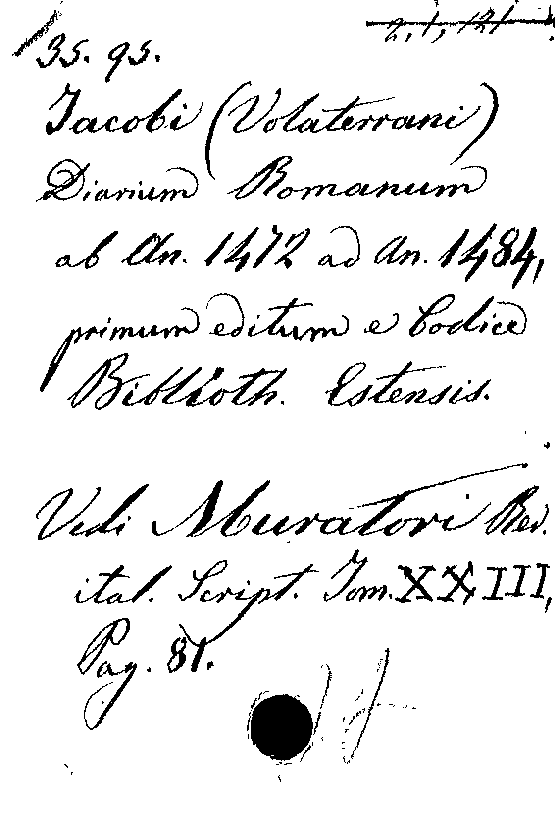 2.1, 121
35. 95.
Jacobi (Volaterrani)
Diarium Romanum
ab An. 1472 ad An. 1484,
primum editum e Codice
Biblioth. Estensis.
Vedi Muratori Rer.
ital. Script. Tom. XXIII,
Pag. 81.